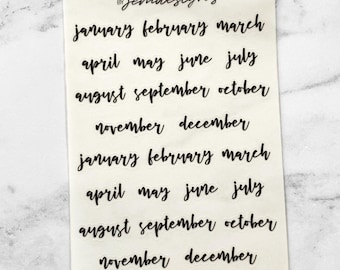 january february march
april may june july
august september october
november december
january february march
april may june july
august september october
november december